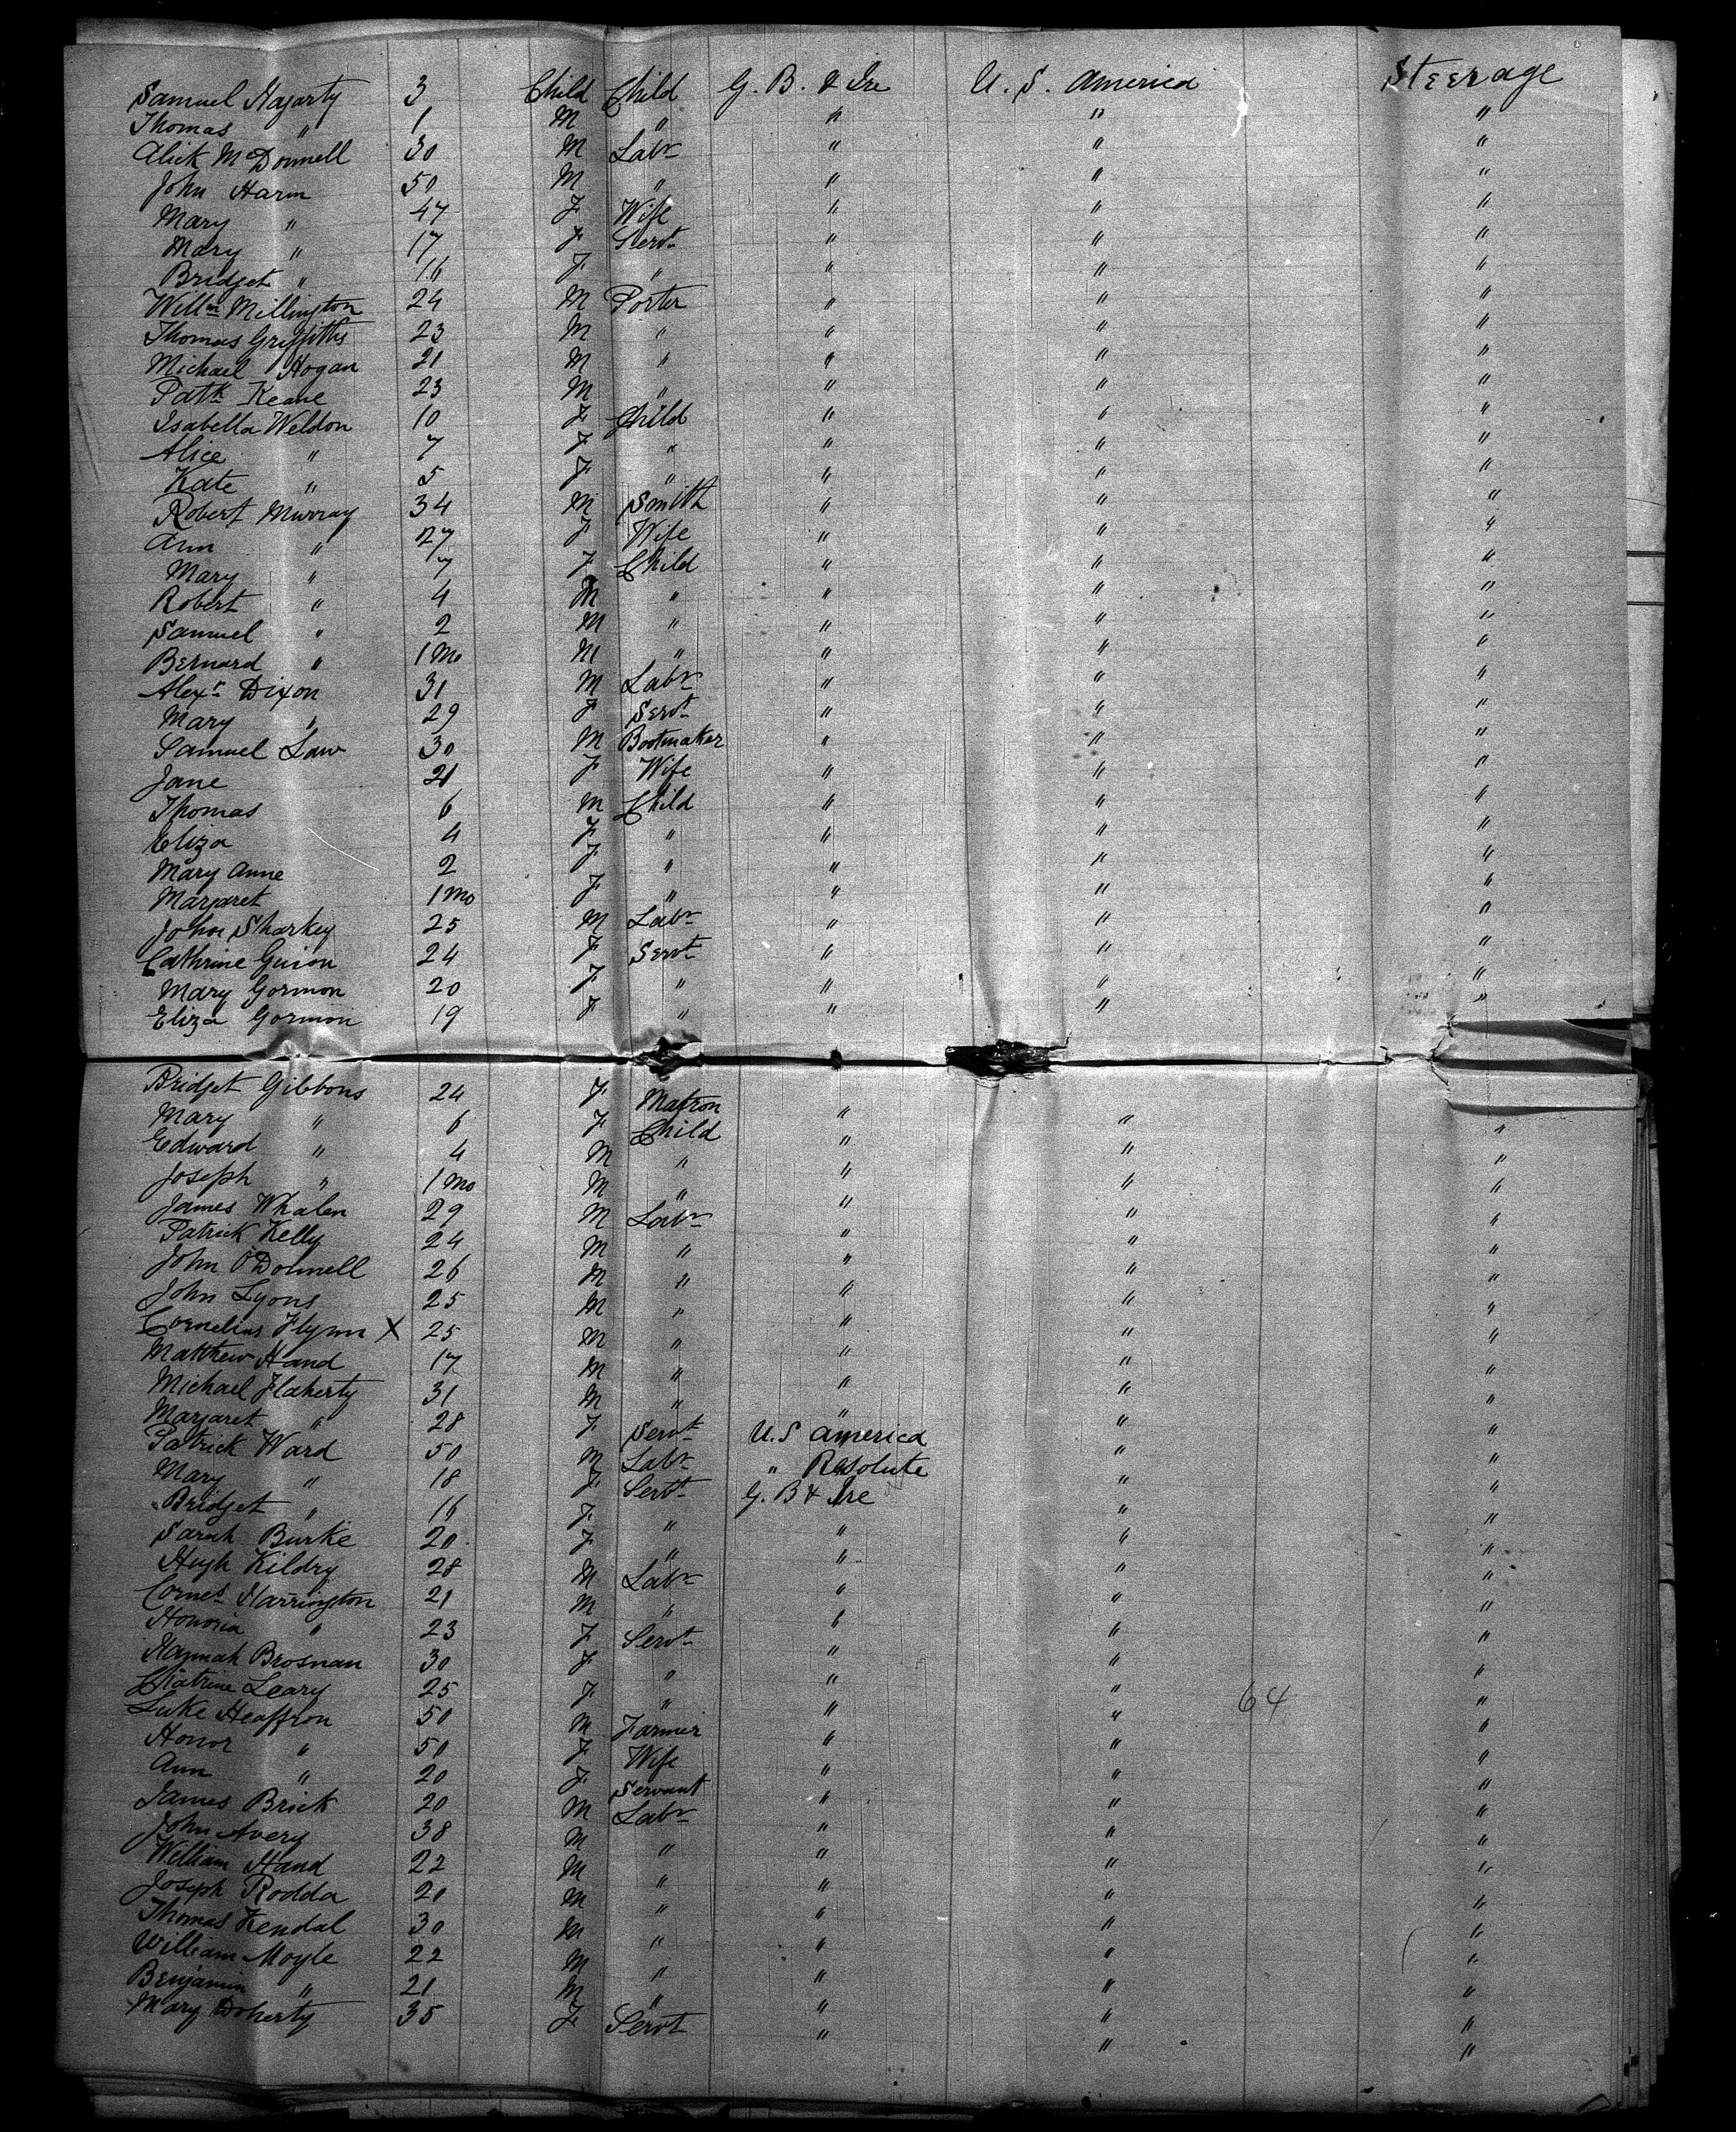 Samuel Hagarty 3 Child Child G. B. & Ire U. S. America Steerage
Thomas " 1 M " " " "
Alick McDonnell 30 M Labr " " "
John Harm 50 M " " " "
Mary " 47 F Wife " " "
Mary " 17 F Servt " " "
Bridget " 16 F " " " "
Willm Millington 24 M Porter " " "
Thomas Griffiths 23 M " " " "
Michael Hogan 21 M " " " "
Patk Keane 23 M " " " "
Isabella Weldon 10 F Child " " "
Alice " 7 F " " " "
Kate " 5 F " " " "
Robert Murray 34 M Smith " " "
Ann " 27 F Wife " " "
Mary " 7 F Child " " "
Robert " 4 M " " " "
Samuel " 2 M " " " "
Bernard " 1 Mo M " " " "
Alexr Dixon 31 M Labr " " "
Mary " 29 F Servt " " "
Samuel Law 30 M Bootmaker " " "
Jane 21 F Wife " " "
Thomas 6 M Child " " "
Eliza 4 F " " " "
Mary Anne 2 F " " " "
Margaret 1 Mo F " " " "
John Sharkey 25 M Labr " " "
Cathrine 24 F Servt " " "
Mary Gormon 20 F " " " "
Eliza Gormon 19 F " " " "
Bridget Gibbons 24 F Matron " " "
Mary " 6 F Child " " "
Edward " 4 M " " " "
Joseph " 1 Mo M " " " "
James Whalen 29 M Labr " " "
Patrick Kelly 24 M " " " "
John O'Donnell 26 M " " " "
John Lyons 25 M " " " "
Cornelius Flynn X 25 M " " " "
Matthew Hand 17 M " " " "
Michael Flaherty 31 M " " " "
Margaret " 28 F Servt U. S America " "
Patrick Ward 50 M Labr " Resolute " "
Mary " 18 F Servt G. B & Ire " "
Bridget " 16 F " " " "
Sarah Burke 20 F " " " "
Hugh Kildry 28 M Labr " " "
Corns Harrington 21 M " " " "
Honoria " 23 F Servt " " "
Hannah Brosnan 30 F " " " "
Leary 25 F " " " 64 "
Luke Heaffron 50 M Farmer " " "
Honor " 50 F Wife " " "
Ann " 20 F Servant " " "
James Brick 20 M Labr " " "
John Avery 38 M " " " "
William Hand 22 M " " " "
Joseph Rodda 20 M " " " "
Thomas Kendal 30 M " " " "
William Moyle 22 M " " " "
Benjamin " 21 M " " " "
Mary Doherty 35 F Servt " " "